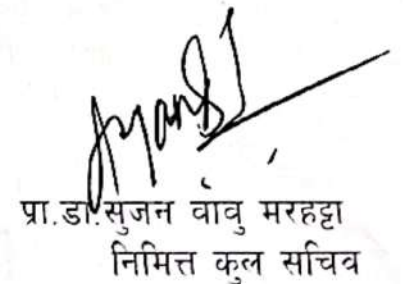 प्रा.डा.सुजन वावु मरहट्टा
निमित्त कुल सचिव